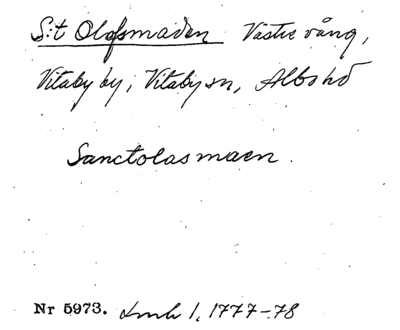 S:t Olofsmaden Västre vång,
Vitaby by, Vitaby sn, Albo hd
Sanctolas maen.
Nr 5973. Lmh 1, 1777-78